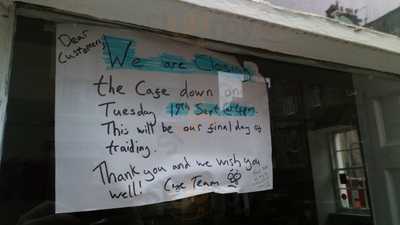 Dear
Customers,
We are Closing
the Cafe down on
Tuesday 17th Sept (at 6pm).
This will be our final day of
traiding.
Thank you and we wish you
well! Cafe Team